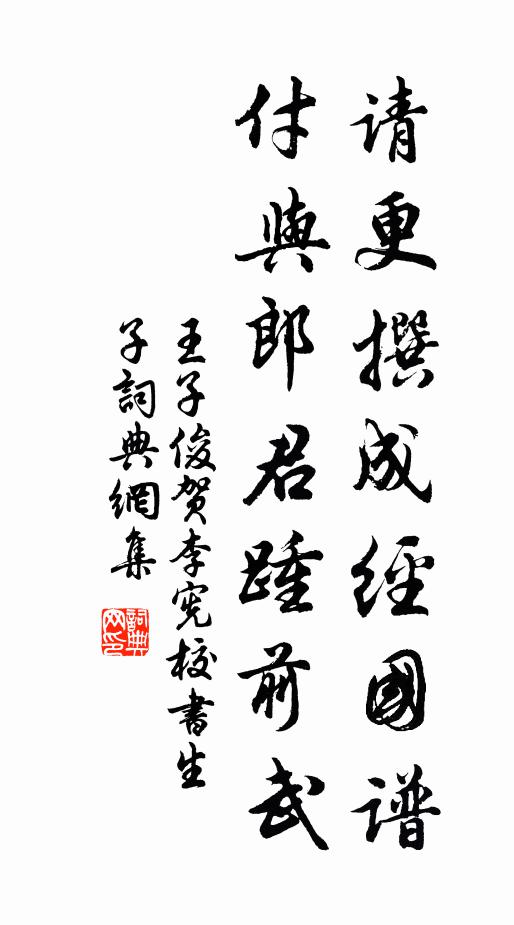 请更撰成經國谱
付與郎君踵前武
王子俊贺李宪校書生
子詞典網集
詞典网印